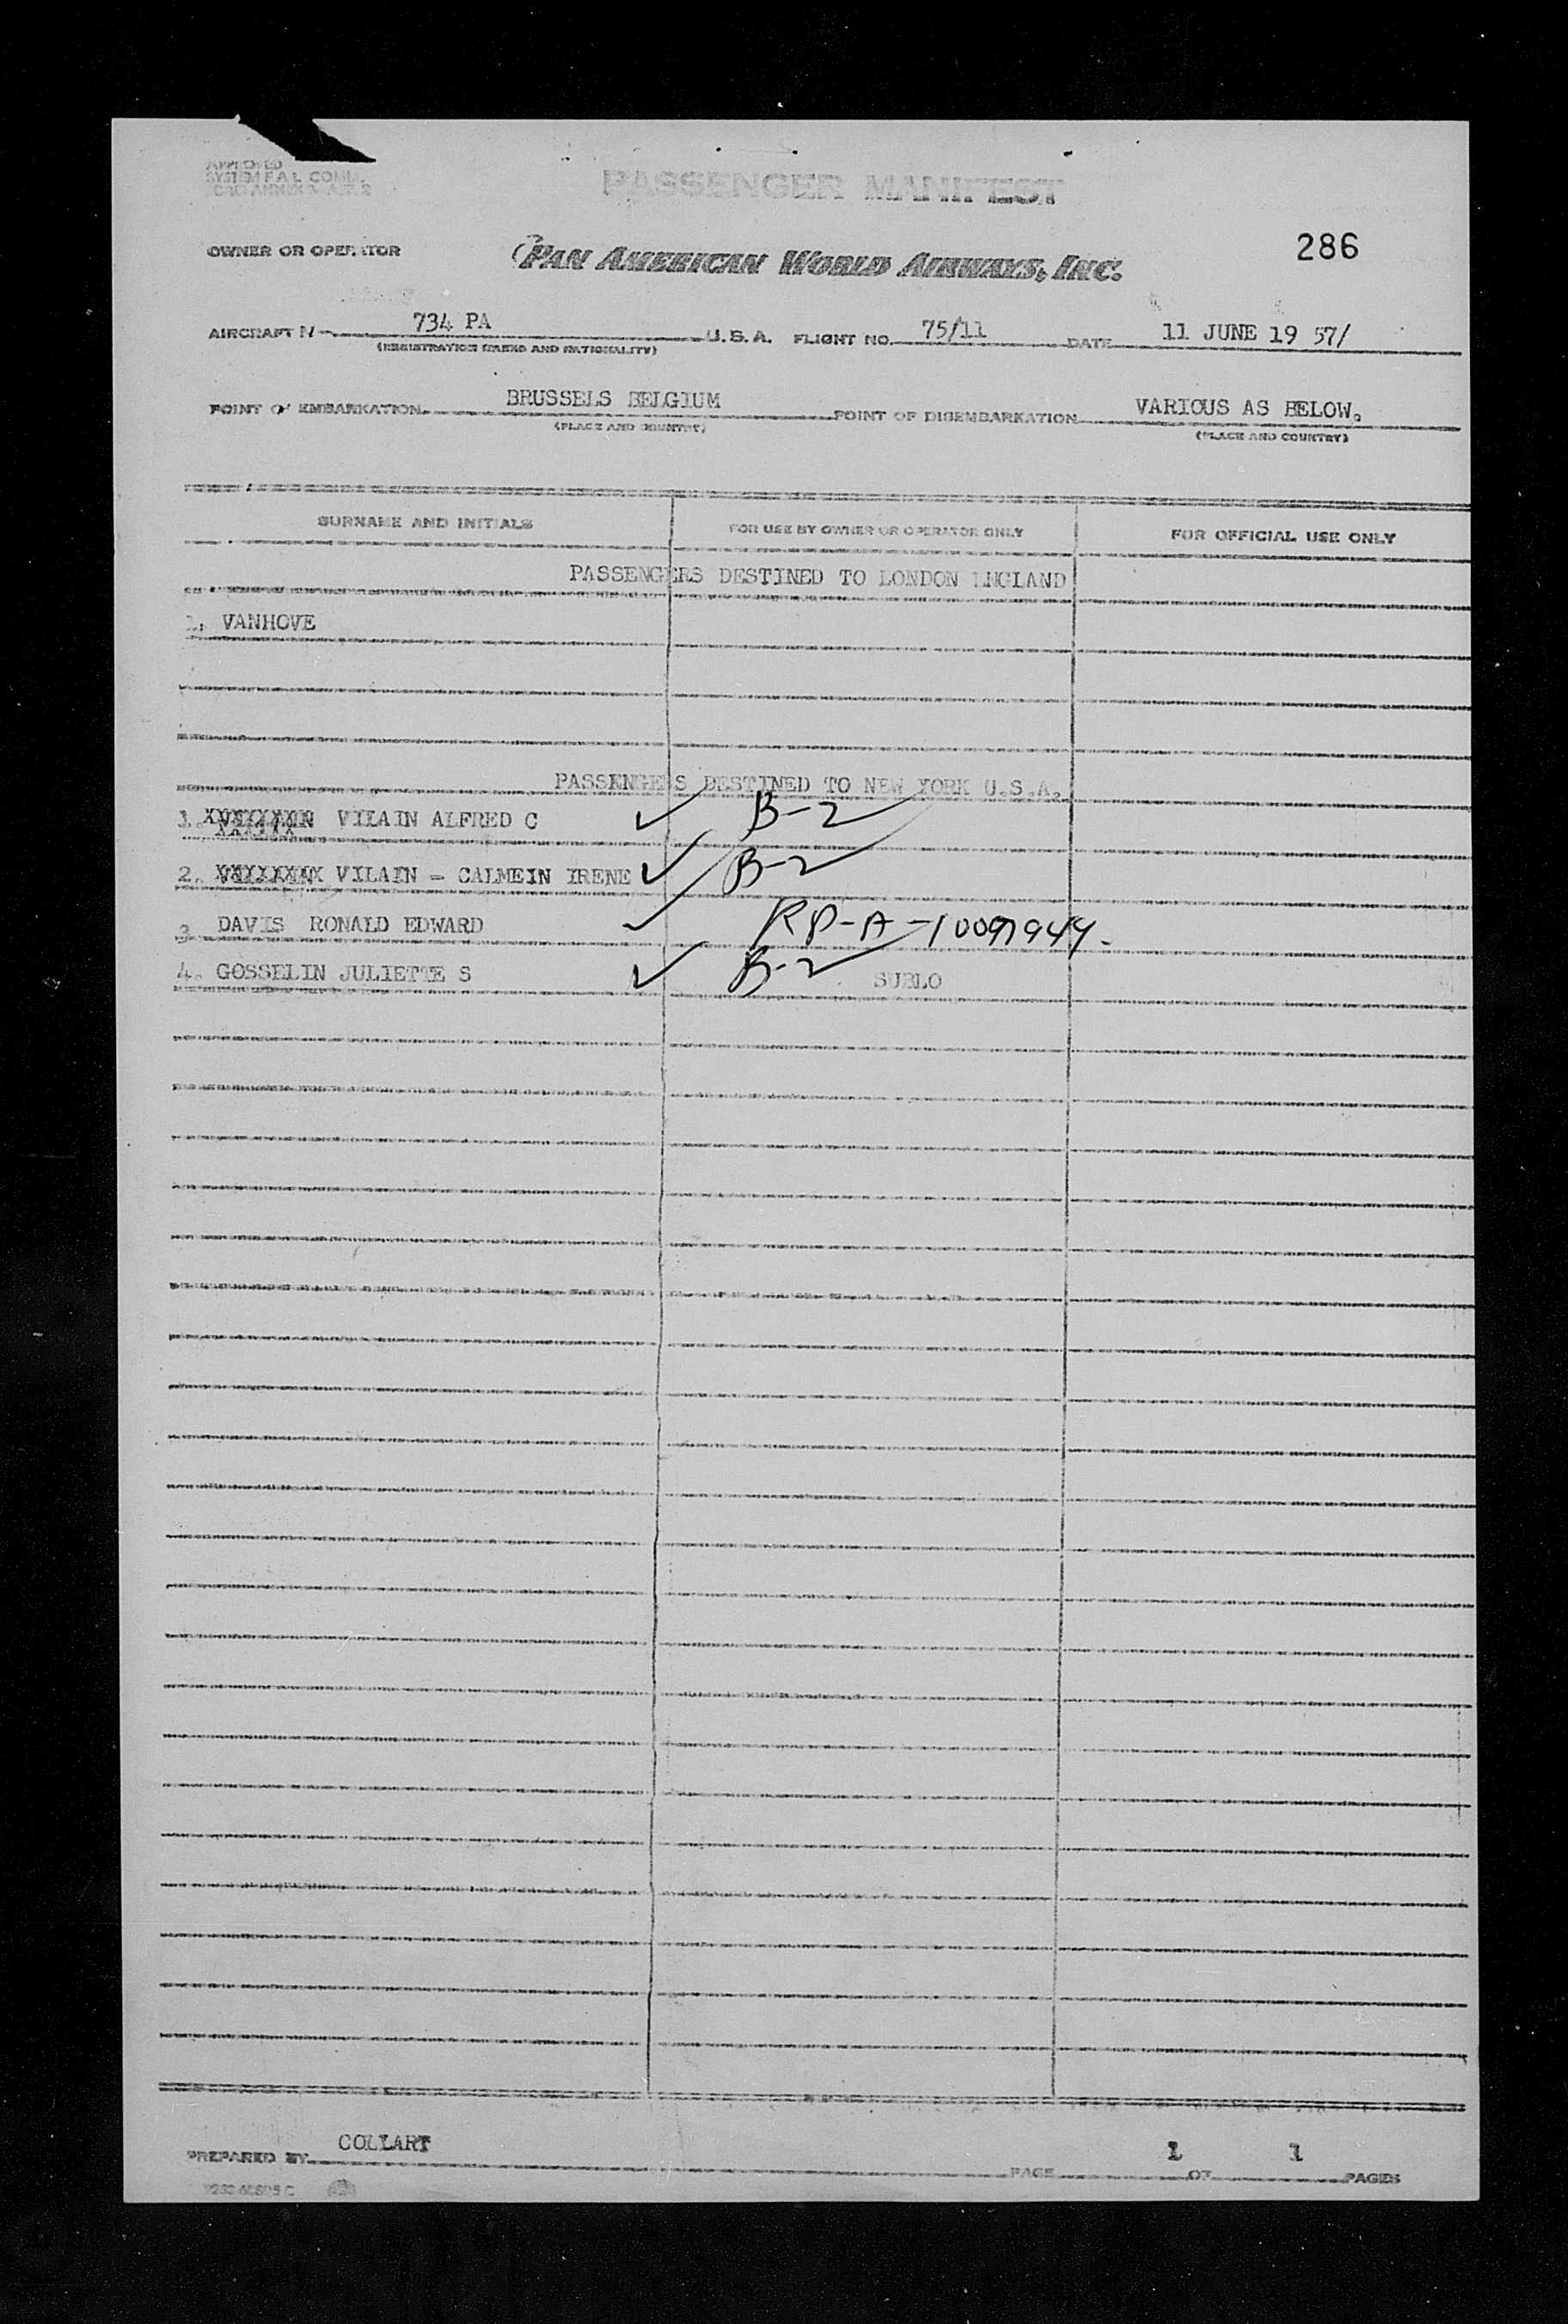 APPROVED
SYSTEM F.A.L. COMM.
PASSENGER MANIFEST
OWNER OR OPERATOR
PAN AMERICAN WORLD AIRWAYS, INC.
286
AIRCRAFT N 734 PA U.S.A. FLIGHT NO. 75/11 DATE 11 JUNE 19 57/
(REGISTRATION MARKS AND NATIONALITY)
POINT OF EMBARKATION BRUSSELS BELGIUM POINT OF DISEMBARKATION VARIOUS AS BELOW.
(PLACE AND COUNTRY) (PLACE AND COUNTRY)
SURNAME AND INITIALS FOR USE BY OWNER OR OPERATOR ONLY FOR OFFICIAL USE ONLY
PASSENGERS DESTINED TO LONDON ENGLAND
1. VANHOVE
PASSENGERS DESTINED TO NEW YORK U.S.A.
1. VILAIN ALFRED C ✓ B-2
2. VILAIN - CALMEIN IRENE ✓ B-2
3 DAVIS RONALD EDWARD ✓ RP-A-10097944.
4. GOSSELIN JULIETTE S ✓ B-2 SUBLO
PREPARED BY COLLART PAGE 1 OF 1 PAGES